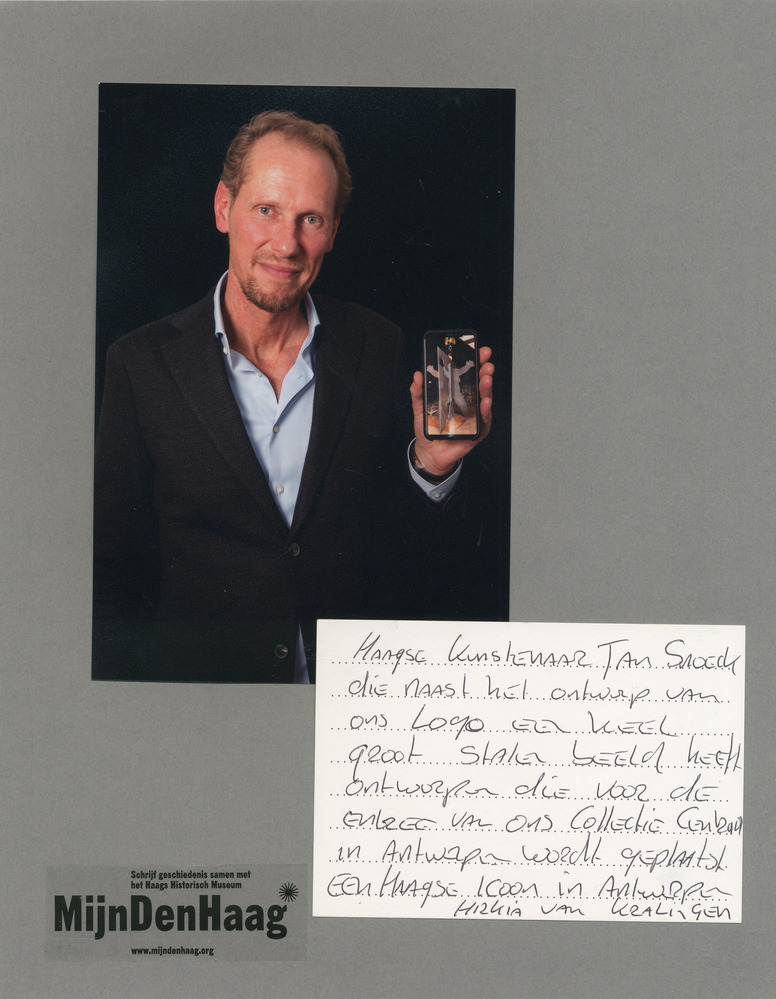 Haagse Kunstenaar Jan Snoeck
die naast het ontwerp van
ons Logo een heel
groot stalen beeld heeft
ontworpen die voor de
entree van ons Collectie Centrum
in Antwerpen wordt geplaatst
EEN HAAGSE ICOON in Antwerpen
HIZKIA VAN KRALINGEN
Schrijf geschiedenis samen met
het Haags Historisch Museum
MijnDenHaag
www.mijndenhaag.org